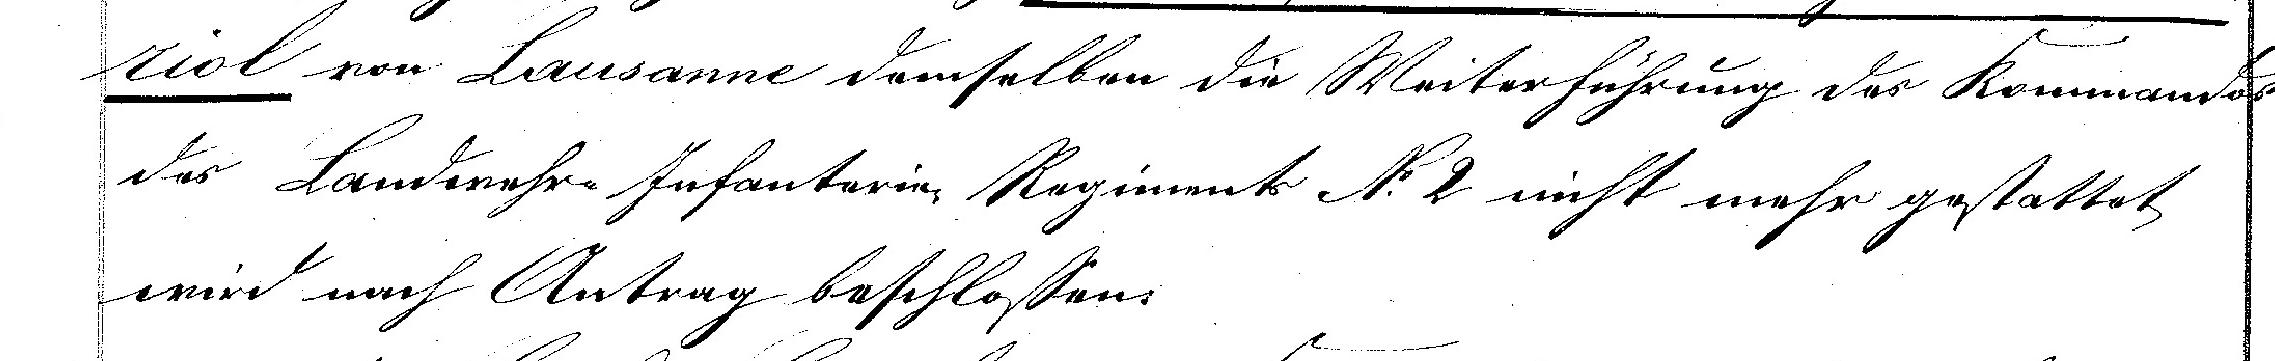 riol von Lausanne demselben die Weiterführung des Kommandos
des Landwehr- Infanterie- Regiments No. 2 nicht mehr gestattet,
wird nach Antrag beschlossen: